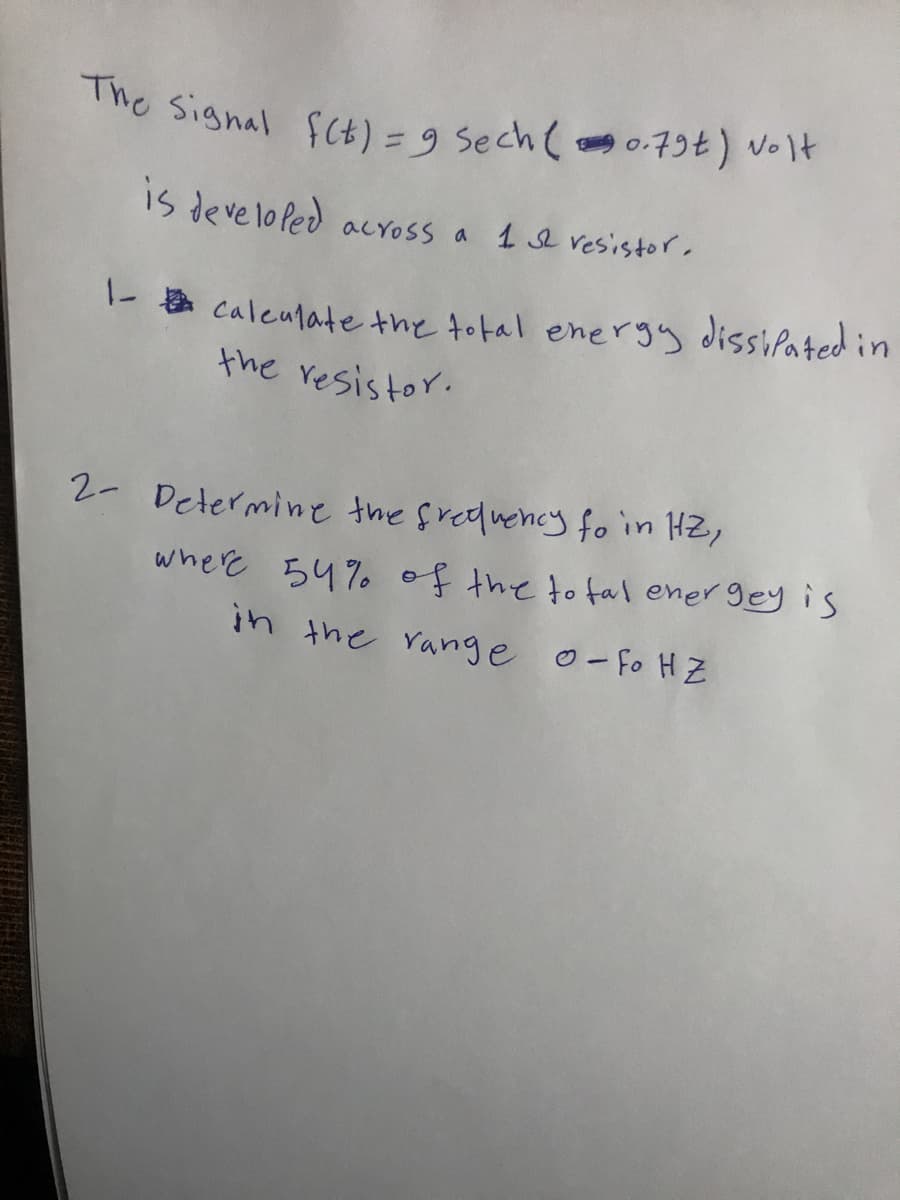 The Signal f(t) = 9 Sech( 0.79t) Volt
is developed across a 1 Ω resistor.
1- calculate the total energy dissipated in
the resistor.
2- Determine the frequency fo in HZ,
where 54% of the total energey is
in the range 0 - Fo HZ